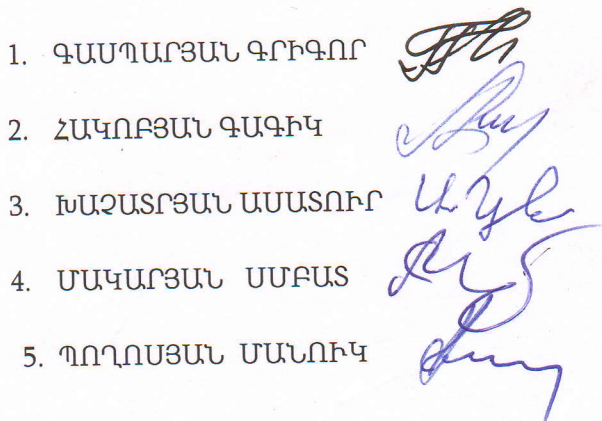 1. ԳԱՍՊԱՐՅԱՆ ԳՐԻԳՈՐ
2. ՀԱԿՈԲՅԱՆ ԳԱԳԻԿ
3. ԽԱՉԱՏՐՅԱՆ ԱՍԱՏՈՒՐ
4. ՄԱԿԱՐՅԱՆ ՍՄԲԱՏ
5. ՊՈՂՈՍՅԱՆ ՄԱՆՈՒԿ